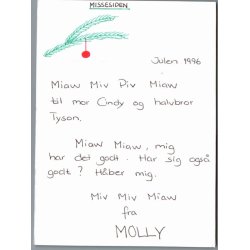 MISSESIDEN
Julen 1996
Miaw Miv Piv Miaw
til mor Cindy og halvbror
Tyson.
Miaw Miaw, mig
har det godt. Har sig også
godt? Håber mig.
Miv Miv Miaw
fra
MOLLY